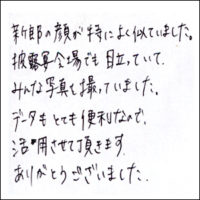 新郎の顔が特によく似ていました。
披露宴会場でも目立っていて、
みんな写真を撮っていました。
データもとても便利なので、
活用させて頂きます。
ありがとうございました。